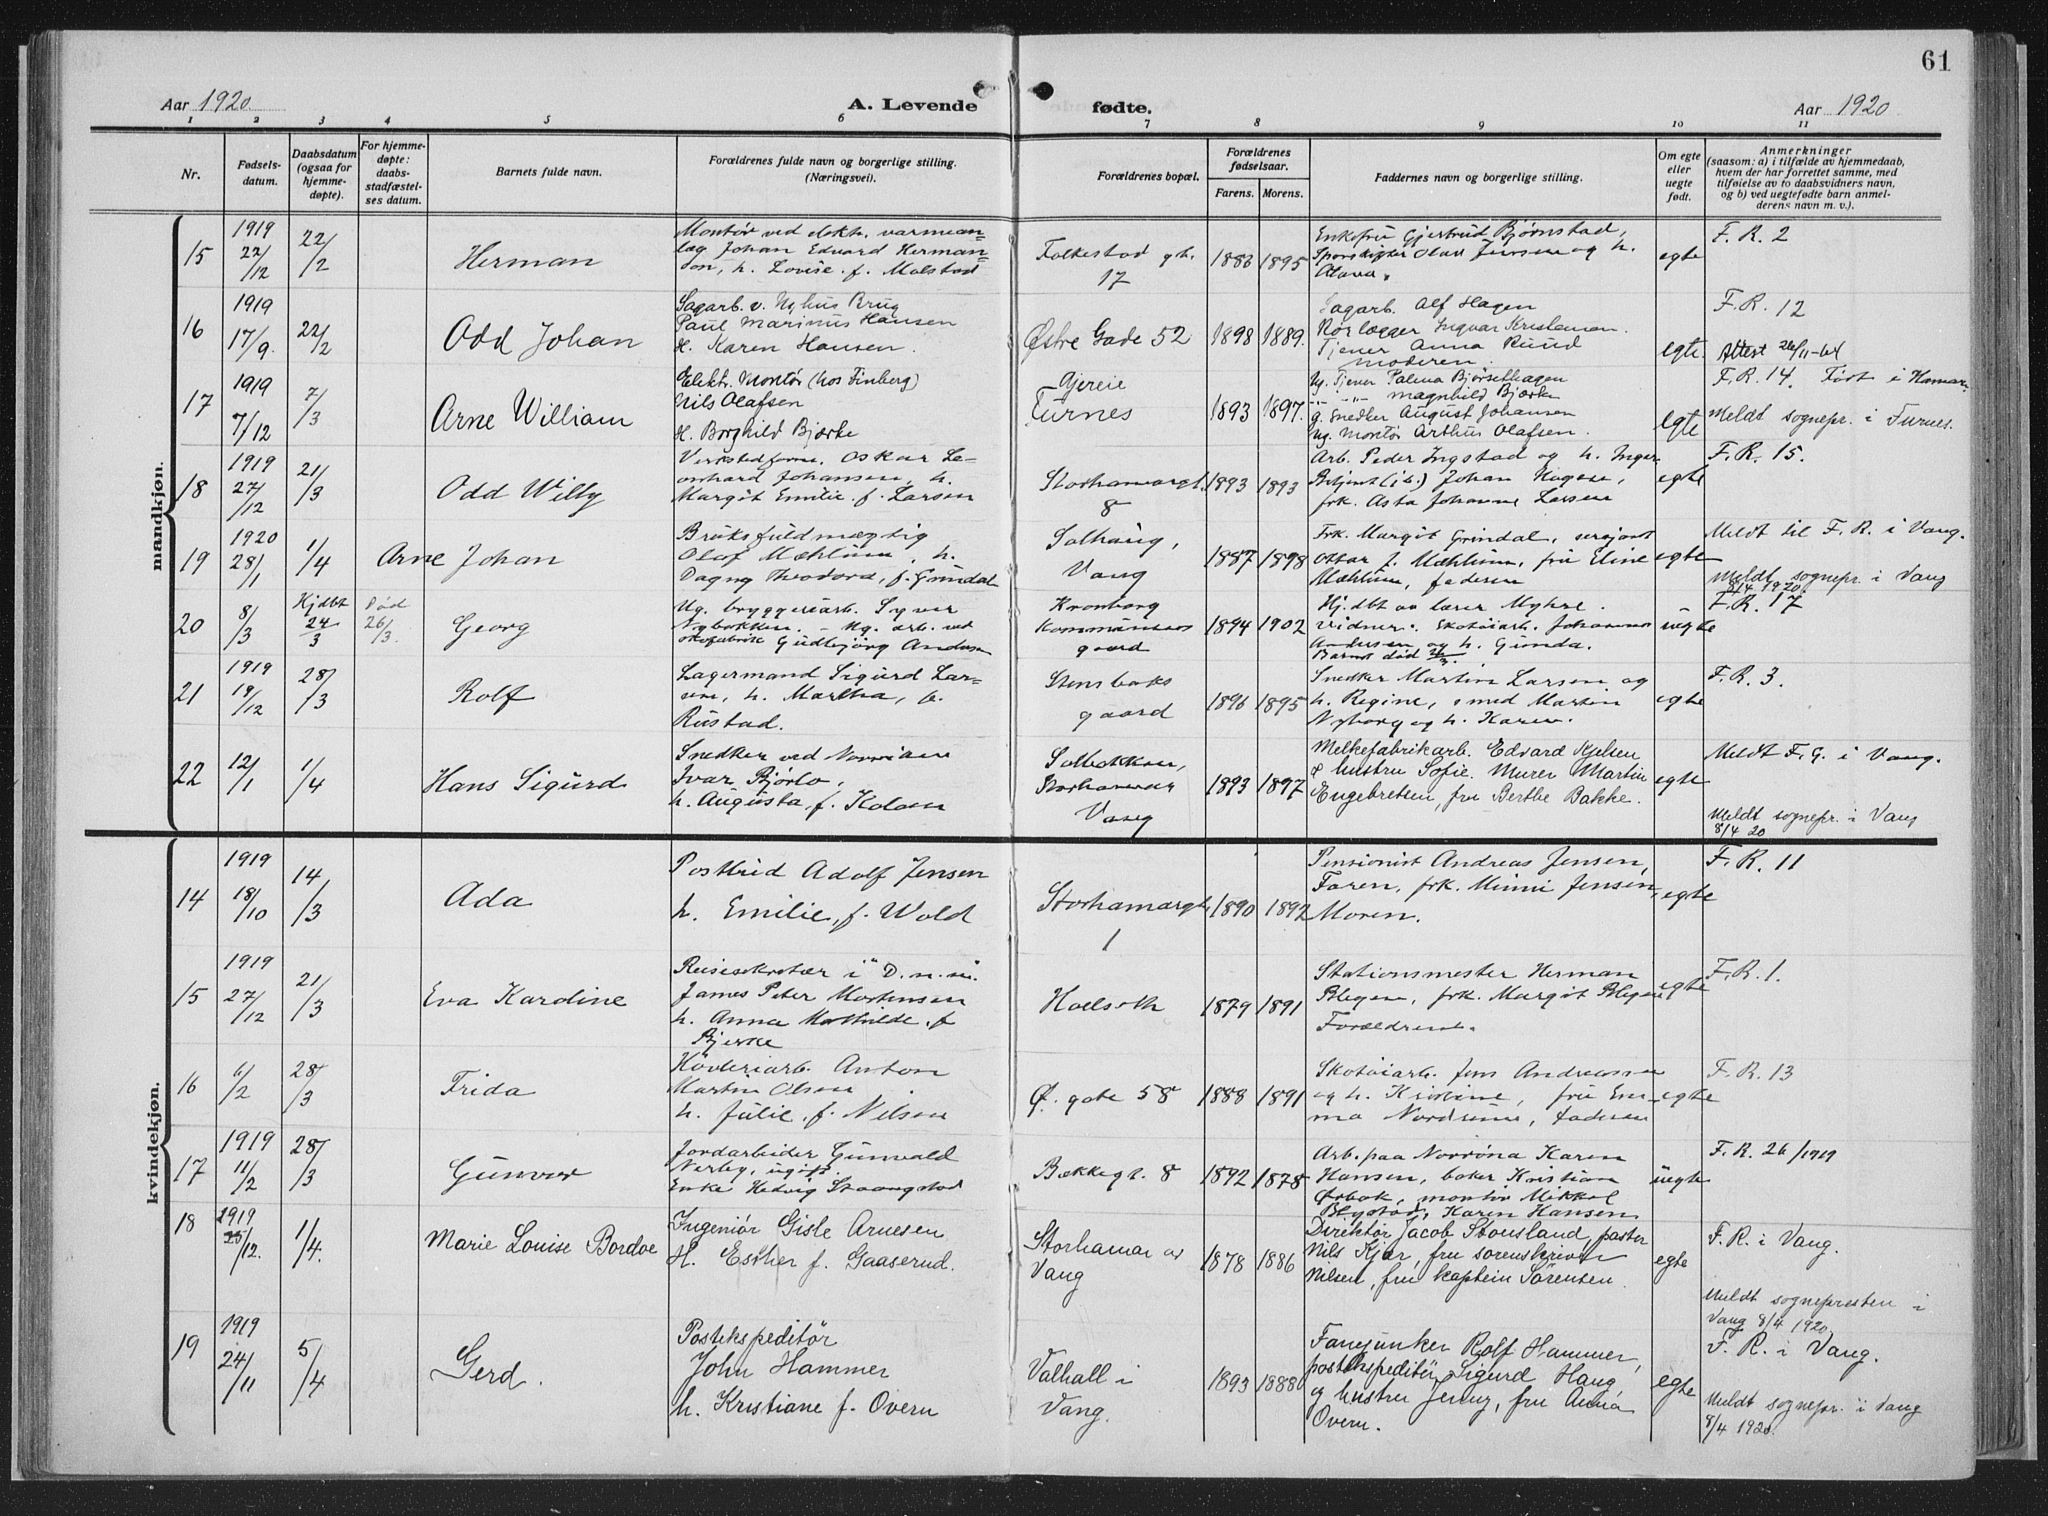 61
Aar 1920
A. Levende
fødte.
Aar 1920
1 2 3 4 5 6 7 8 9 10 11
Nr.
Fødsels-
datum.
Daabsdatum
(ogsaa for
hjemme-
døpte).
For hjemme-
døpte:
daabs-
stadfæstel-
ses datum.
Barnets fulde navn.
Forældrenes fulde navn og borgerlige stilling.
(Næringsvei).
Forældrenes bopæl.
Forældrenes
fødselsaar.
Farens. Morens.
Faddernes navn og borgerlige stilling.
Om egte
eller
uegte
født.
Anmerkninger
(saasom: a) i tilfælde av hjemmedaab,
hvem der har forrettet samme, med
tilføielse av to daabsvidners navn,
og b) ved uegtefødte barn anmel-
derens navn m. v.).
mandkjøn.
15
1919
22/12
22/2
Herman
Montør ved elekt. varmean-
læg Johan Edvard Herman-
sen, h. Lovise f. Molstad
Folkestad gt.
17
1883 1895
Enkefru Gjertrud Bjørnstad,
Olav Jensen og h.
Olava.
egte
F. R. 2
16
1919
17/9.
22/2
Odd Johan
Sagarb. v. Nyhus Brug
Paul Marinus Hansen
H. Karen Hansen.
Østre Gade 52
1898 1889.
Sagarb. Alf Hagen
Rørlægger Ingvar Kristiansen.
Tjener Anna Ruud
Moderen.
egte.
F. R. 12
Attest 26/11-64
17
1919
7/12
7/3
Arne William
Elektr. Montør (hos Finberg)
Nils Olafsen
H. Borghild Bjerke
Furnes
1893 1897.
Ug. Tjener Palma Bjørselhagen
" " Magnhild Bjerke
g. Snedker August Johansen
ug. Montør Arthur Olafsen.
egte
F. R. 14. Født i Hamar.
Meldt sognepr. i Furnes.
18
1919
27/12
21/3
Odd Willy
Verkstedform. Oskar Le-
onhard Johansen, h.
Margit Emilie f. Larsen
Storhamargt.
8
1893 1893
Arb. Peder Ingstad og h. Inger
Johan Hagen,
frk. Asta Johanne Larsen
egte
F. R. 15.
19
1920
28/1
1/4
Arne Johan
Bruksfuldmægtig
Olaf Mæhlum, h.
Dagny Theodora, f. Grindal
Solhaug,
Vang
1887 1898
Frk. Margit Grindal, sersjant
Ottar J. Mæhlum, fru Eline
Mæhlum, faderen
egte
Meldt til F. R. i Vang.
Meldt sognepr. i Vang
8/4 1920.
20
8/3
Hjdbt
24/3
Død
26/3.
Georg
Ug. bryggeriarb. Syver
Nybakken. – Ug. arb. ved
skofabrik Gudbjörg Andersen
Kronborg
Kommunens
gaard
1894 1902
Hj.dbt av lærer Myhre.
Vidner: Skotøiarb. Johannes
Andersen og h. Gunda.
Barnet død 26/3.
uegte
F. R. 17
21
1919
19/12
28/3
Rolf
Lagermand Sigurd Lar-
sen, h. Martha, f.
Rustad.
Stensbaks
gaard
1896 1895
Snedker Martin Larsen og
h. Regine, smed Martin
Nyborg og h. Karen.
egte
F. R. 3.
22
12/1
1/4
Hans Sigurd
Snedker ved Norrøna
Ivar Bjørlo,
h. Augusta, f. Kolsen
Solbakken,
Storhamar
Vang
1893 1897
Melkefabrikarb. Edvard Kjelsen
& hustru Sofie. Murer Martin
Engebretsen, fru Berthe Bakke.
egte
Meldt F. G. i Vang.
Meldt sognepr. i Vang
8/4 20
kvindekjøn.
14
1919
18/10
14/3
Ada
Postbud Adolf Jensen
h. Emilie, f. Wold
Storhamargt.
1
1890 1892
Pensionist Andreas Jensen,
Faren, frk. Minni Jensen,
Moren.
egte
F. R. 11
15
1919
27/12
21/3
Eva Karoline
Reisesekretær i "D. n. m."
James Peter Mortensen
h. Anna Mathilde, f.
Bjerke
Holseth
1879 1891
Stationsmester Herman
Blegen, frk. Margit Blegen
Forældrene.
egte
F. R. 1.
16
6/2
28/3
Frida
Høvleriarb. Anton
Martin Olsen
h. Julie, f. Nilsen
Ø. gate 58
1888 1891
Skotøiarb. Jens Andreassen
og h. Kristine, fru Em-
ma Nordseime, faderen
egte
F. R. 13
17
1919
11/2
28/3
Gunvor
Jordarbeider Gunvald
Nerby, ugift.
Enke Hedvig Staangstad
Bekkegt. 8
1892 1878
Arb. paa Norrøna Karen
Hansen, baker Kristian
Ørbæk, montør Mikkel
Blystad, Karen Hansen
uegte
F. R. 26/1919
18
1919
25/12.
1/4.
Marie Louise Bordoe
Ingeniør Gisle Arnesen
H. Esther f. Gaaserud.
Storhamar av
Vang
1878 1886
Direktør Jacob Stousland, pastor
Nils Kjær, fru sorenskriver
Nilsen, fru kaptein Sørensen.
egte
F. R. i Vang.
Meldt sognepresten i
Vang 8/4 1920.
19
1919
24/11
5/4
Gerd.
Postekspeditør
John Hammer
h. Kristiane f. Overn
Valhall i
Vang.
1893 1888
Fanejunker Rolf Hammer,
postekspeditør Sigurd Haug
og hustru Jenny, fru Anna
Overn.
egte
F. R. i Vang.
Meldt sognepr. i Vang
8/4 1920.